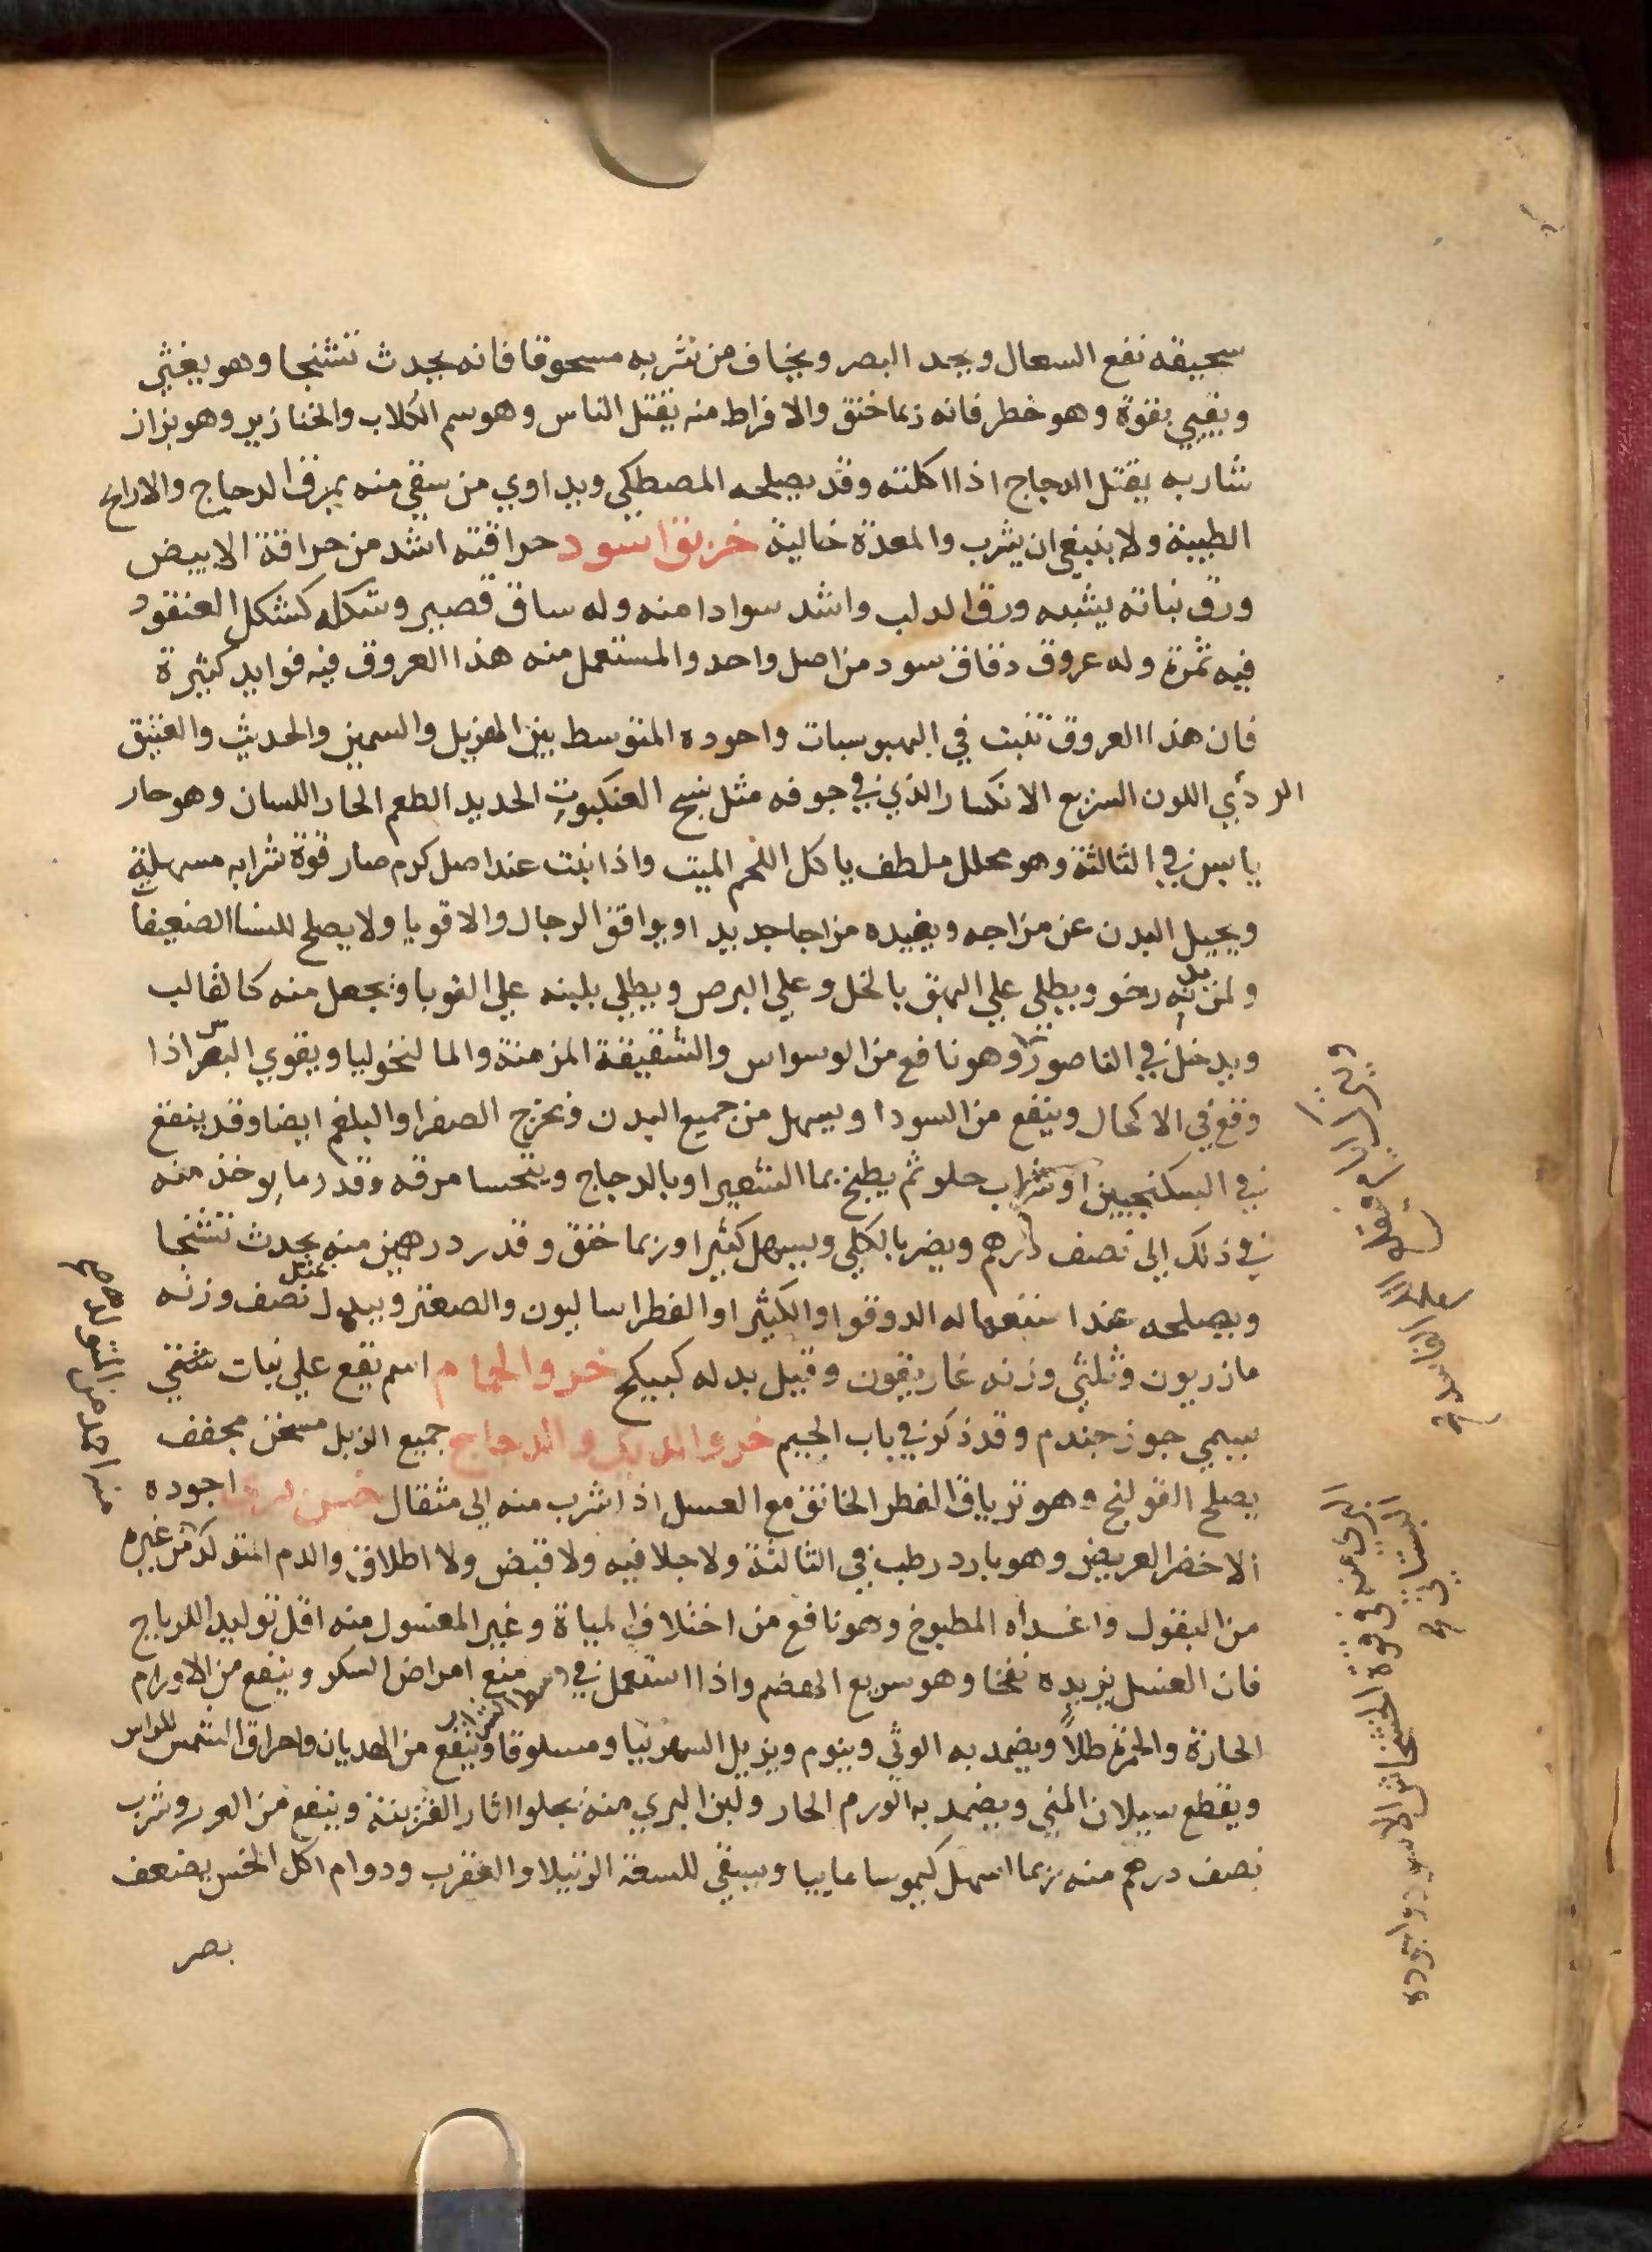 سحيقه نفع السعال ويحد البصر ويخاف من شربه مسحوقا فانه يحدث تشنجا وهو يغثي
ويقيي بقوة وهو خطر فانه ربما خنق والافراط منه يقتل الناس وهو سم الكلاب والخنازير وهو براز
شاربه يقتل الدجاج اذا اكلته وقد يصلحه المصطكي ويداوي من سقي منه بمرق الدجاج والاراح
الطيبة ولا ينبغي ان يشرب والمعدة خالية خربق اسود حرافته اشد من حرافة الابيض
ورق نباته يشبه ورق الدلب واشد سوادا منه وله ساق قصير وشكله كشكل العنقود
فيه ثمرة وله عروق دقاق سود من اصل واحد والمستعمل منه هذا العروق فيه فوايد كثيرة
فان هذا العروق تنبت في اليبوسات واجوده المتوسط بين الهزيل والسمين والحديث والعتيق
الردأي اللون السريع الانكسار الذي في جوفه مثل نسج العنكبوت الحديد الطعم الحار اللسان وهو حار
يابس في الثالثة وهو محلل ملطف ياكل اللحم الميت واذا نبت عند اصل كرم صار قوة شرابه مسهلة
ويحيل البدن عن مزاجه ويفيده مزاجا جديدا ويوافق الرجال والاقويا ولا يصلح للنسا الضعيفات
ولمن بدنه رخو ويطلي علي البهق بالخل وعلي البرص ويطلي بلبنه علي القوبا ويجعل منه كالقالب
ويدخل في الناصور وهو نافع من الوسواس والشقيقة المزمنة والمالنخوليا ويقوي البصر اذا
وقع في الاكحال وينفع من السودا ويسهل من جميع البدن ويخرج الصفرا والبلغم ايضا وقد ينقع
في السكنجبين او شراب حلو ثم يطبخ بما الشعير او بالدجاج ويتحسا مرقه وقدر ما يوخذ منه
في ذلك الي نصف درهم ويضر بالكلي ويسهل كثيرا وربما خنق وقدر درهمين منه يحدث تشنجا
ويصلحه عند استعماله الدوقوا والكثيرا والفطراساليون والصعتر وبدل نصف وزنه
مازريون وثلثي وزنه غاريقون وقيل بدله كبيكج خرو الحمام اسم يقع علي نبات شتي
يسمي جوز جندم وقد ذكر في باب الجيم خرو الديك والدجاج جميع الزبل مسخن مجفف
يصلح القولنج وهو ترياق الفطر الخانق مع العسل اذا شرب منه الي مثقال خس اجوده
الاخضر العريض وهو بارد رطب في الثالثة ولا جلا فيه ولا قبض ولا اطلاق والدم المتولد من غيره
من البقول واغداه المطبوخ وهو نافع من اختلاف المياة وغير المغسول منه اقل توليد اللرياح
فان الغسل يزيده نفخا وهو سريع الهضم واذا استعمل في وسط الشراب منع امراض السكر وينفع من الاورام
الحارة والحمرة طلاً ويضمد به الوثي وينوم ويزيل السهر نيا ومسلوقا وينفع من الهديان واحراق الشمس للراس
ويقطع سيلان المني ويضمد به الورم الحار ولبن البري منه يجلوا اثار القرنية وينفع من وشرب
نصف درهم منه ربما اسهل كيموسا ماييا ويسقي للسعة الرتيلا والعقرب ودوام اكل الخس يضعف
بصر
البري منه في قوة الخشخاش الاسود واجوده
البستاني